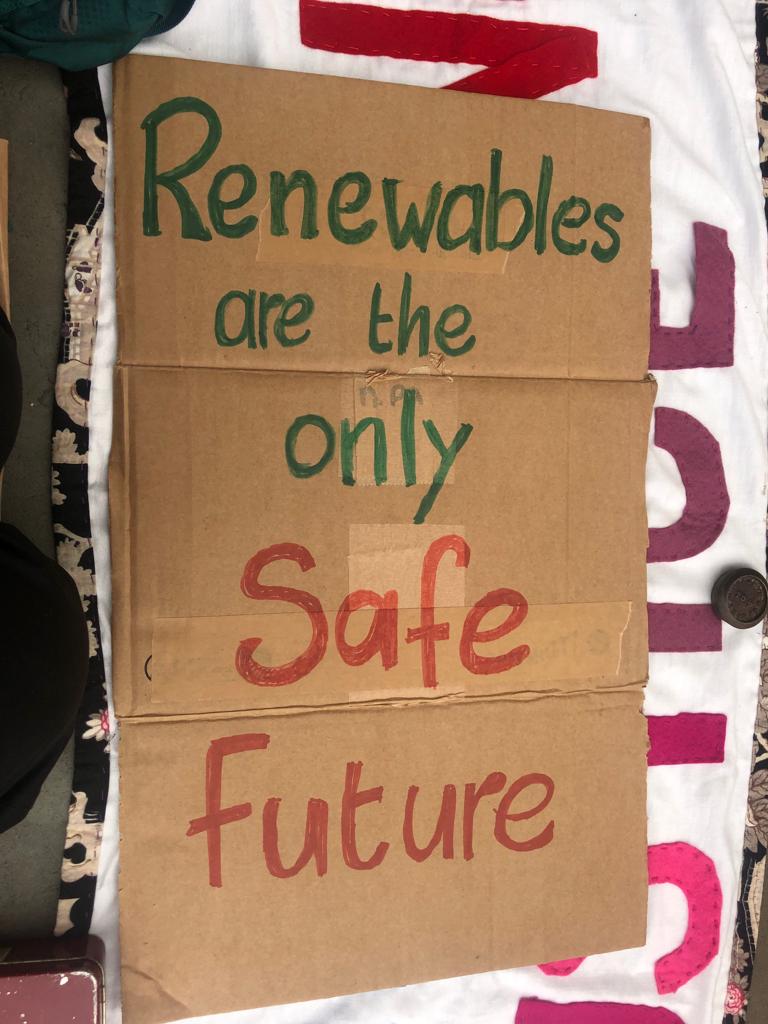 Renewables
are the
only
Safe
future